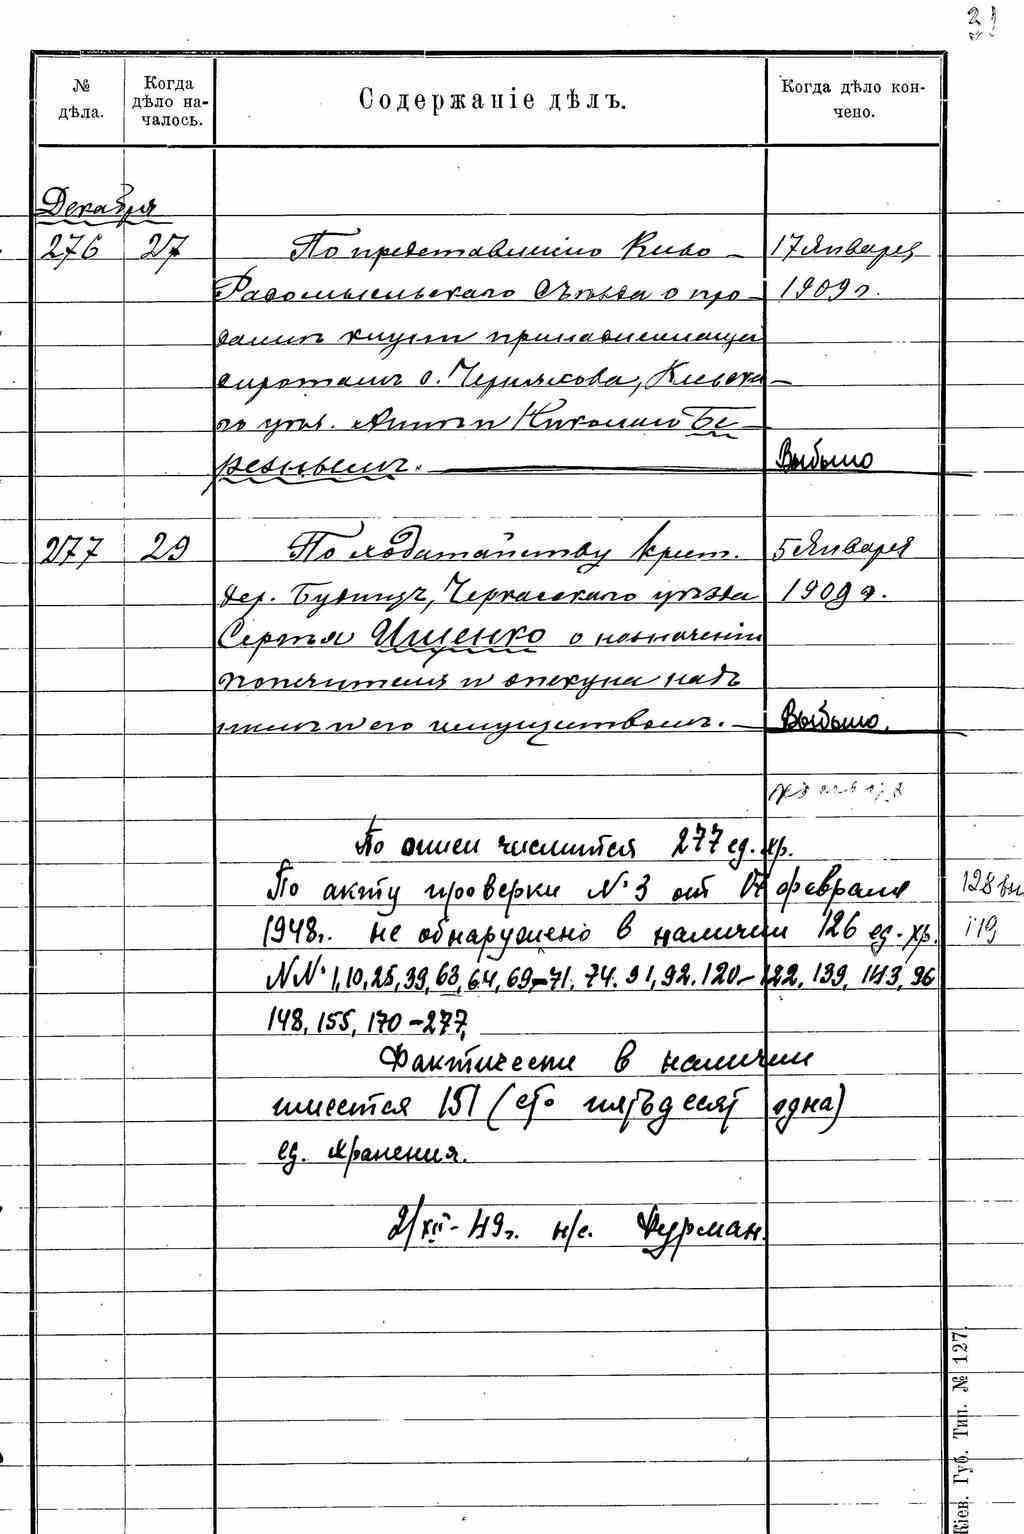 № дѣла.
Когда дѣло на-чалось.
Содержаніе дѣлъ.
Когда дѣло кон-чено.
Декабря
276 27 По представленію Кіево - 17 Января
Радомысльскаго Съѣзда о про- 1909 г.
дажѣ принадлежащей
сиротамъ с. Чернякова, Кіевска-
го уѣз. и Николаю Бе-
резнымъ. Выбыло
277 29 По ходатайству крест. 5 Января
дер. Будищъ, Черкасскаго уѣзда 1909 г.
Сергѣя Ищенко о назначеніи
попечителя и опекуна надъ
нимъ и его имуществомъ. - Выбыло.
По описи числится 277 ед. хр.
По акту проверки №3 от февраля
1948г. не обнаружено в наличии 126 ед. хр.
№№ 1, 10, 25, 39, 63, 64, 69-71, 74, 91, 92, 120-122, 139, 143, 96
148, 155, 170-277,
Фактически в наличии
имеется 151 (сто пятьдесят одна)
ед. хранения.
2/XII-49г. н/с. Фурман.
128 вы
119
Кіев. Губ. Тип. № 127.